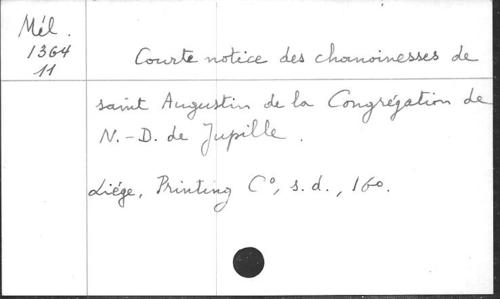 Mél.
1364
11
Courte notice des chanoinesses de
saint Augustin de la Congrégation de
N.-D. de Jupille.
Liége, Printing C°, s.d., 16°.